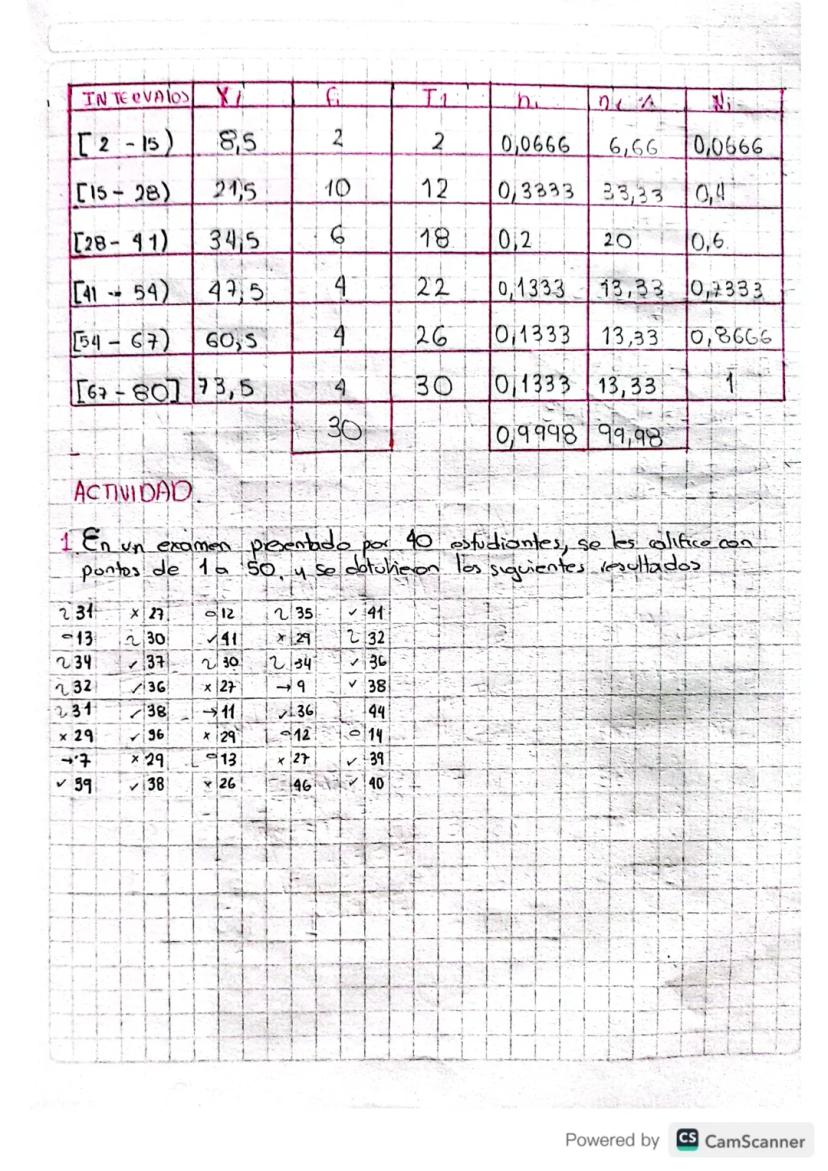 INTERVAlOS Xi fi Fi ni ni % Ni
[ 2 - 15) 8,5 2 2 0,0666 6,66 0,0666
[15 - 28) 21,5 10 12 0,3333 33,33 0,4
[28 - 41) 34,5 6 18 0,2 20 0,6
[41 - 54) 47,5 4 22 0,1333 13,33 0,7333
[54 - 67) 60,5 4 26 0,1333 13,33 0,8666
[67 - 80] 73,5 4 30 0,1333 13,33 1
30 0,9998 99,98
ACTIVIDAD.
1. En un exámen presentado por 40 estudiantes, se les califico con
puntos de 1 a 50, y se obtuvieron los siguientes resultados
31 x 27 12 35 ✓ 41
13 30 ✓ 41 x 29 32
34 ✓ 37 30 34 ✓ 36
32 ✓ 36 x 27 → 9 ✓ 38
31 ✓ 38 → 11 ✓ 36 44
x 29 ✓ 36 x 29 12 14
→ 7 x 29 13 x 27 ✓ 39
✓ 39 ✓ 38 x 26 46 ✓ 40
Powered by CS CamScanner